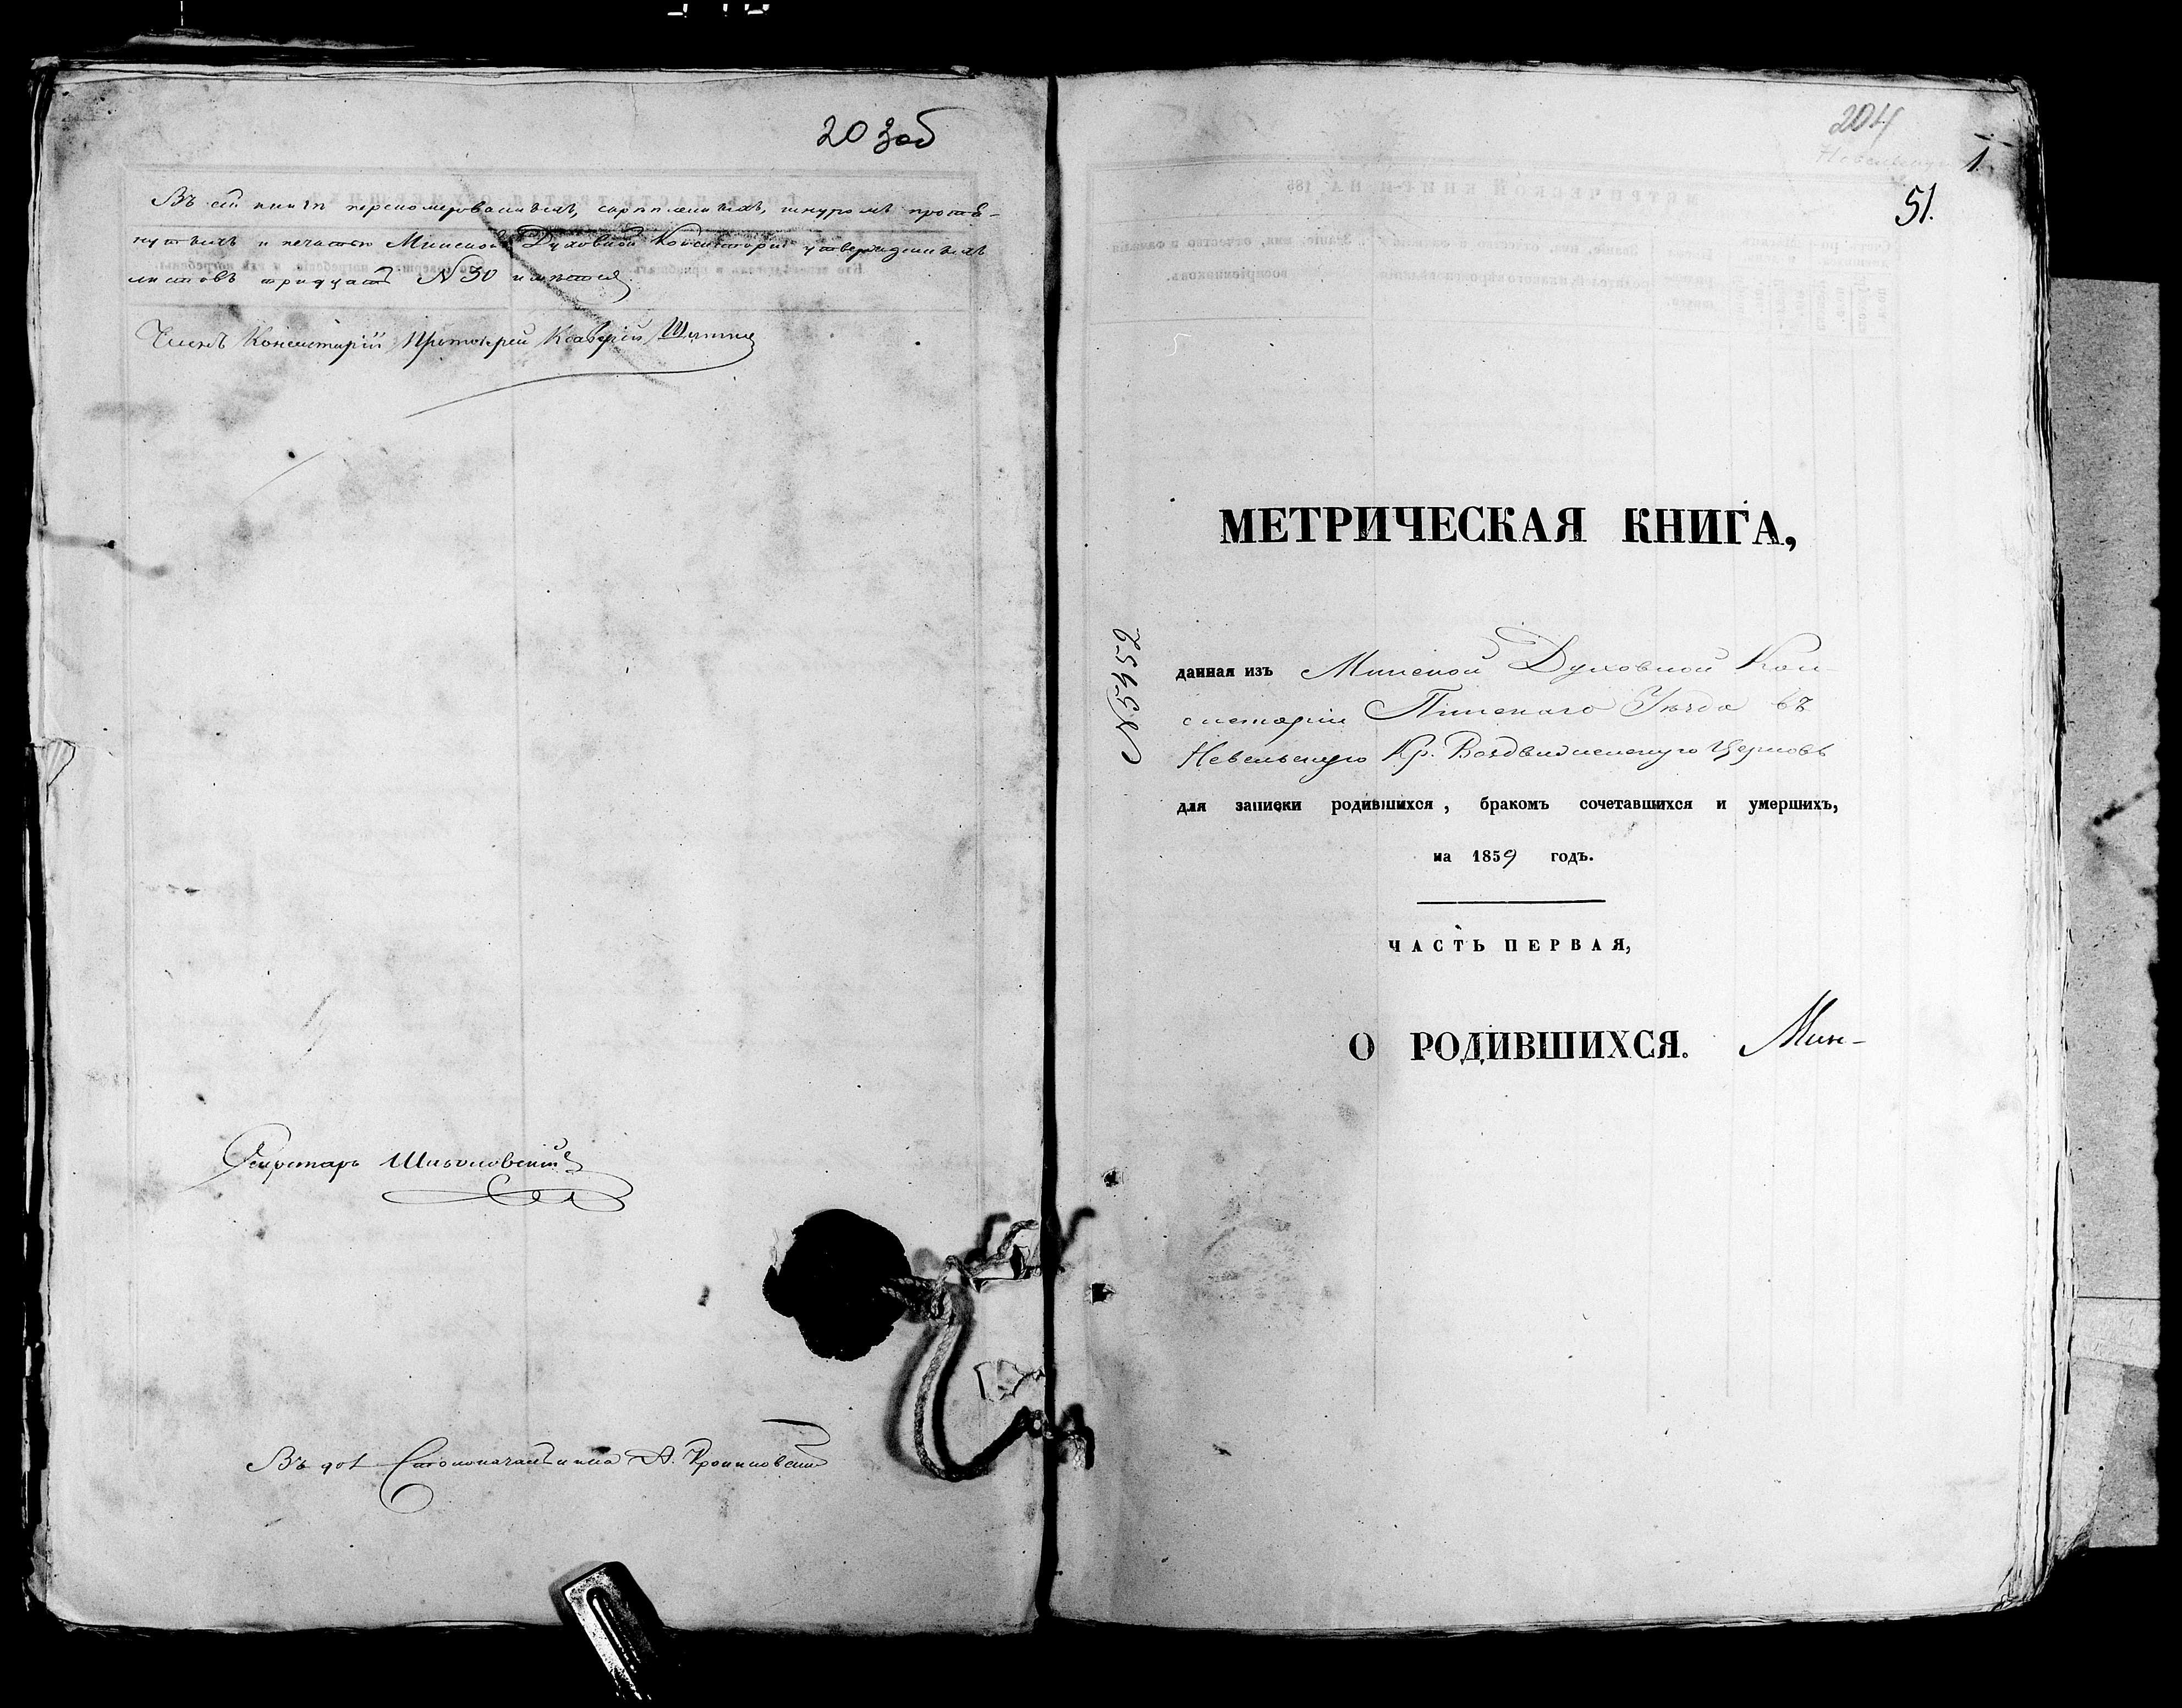 203об
Въ сей книгѣ перенумерованныхъ, скрѣпленныхъ, шнуромъ протя-
нутыхъ и печатью Минской Духовной Консисторіи утвержденныхъ
листовъ тридцать №30 имѣется
Членъ Консисторіи Протоіерей
Секретарь
Въ дол. Столоначальника А.
204
1.
51.
МЕТРИЧЕСКАЯ КНИГА,
№5452
данная изъ Минской Духовной Кон-
систоріи Пинскаго Уѣзда въ
Невельскую Кр. Воздвиженскую Церковь
для записки родившихся, бракомъ сочетавшихся и умершихъ,
на 1859 годъ.
ЧАСТЬ ПЕРВАЯ,
О РОДИВШИХСЯ. Мин-